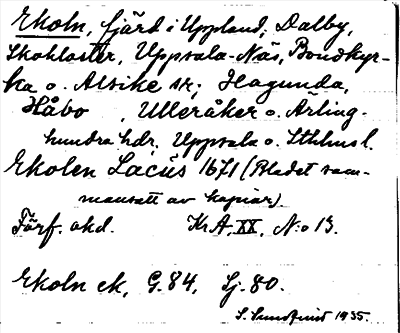 Ekoln, fjärd i Uppland, Dalby,
Skokloster, Uppsala-Näs, Bondkyr-
ka o. Alsike sr; Hagunda,
Håbo, Ulleråker o. Ärling-
hundra hdr. Uppsala o. Sthlms l.
Ekolen Lacùs 1671 (Bladet sam-
mansatt av kopior)
Förf. okd. KrA, XX, N:o 13.
Ekoln ek, G. 84, Sj. 80.
S. Sundqvist 1935.